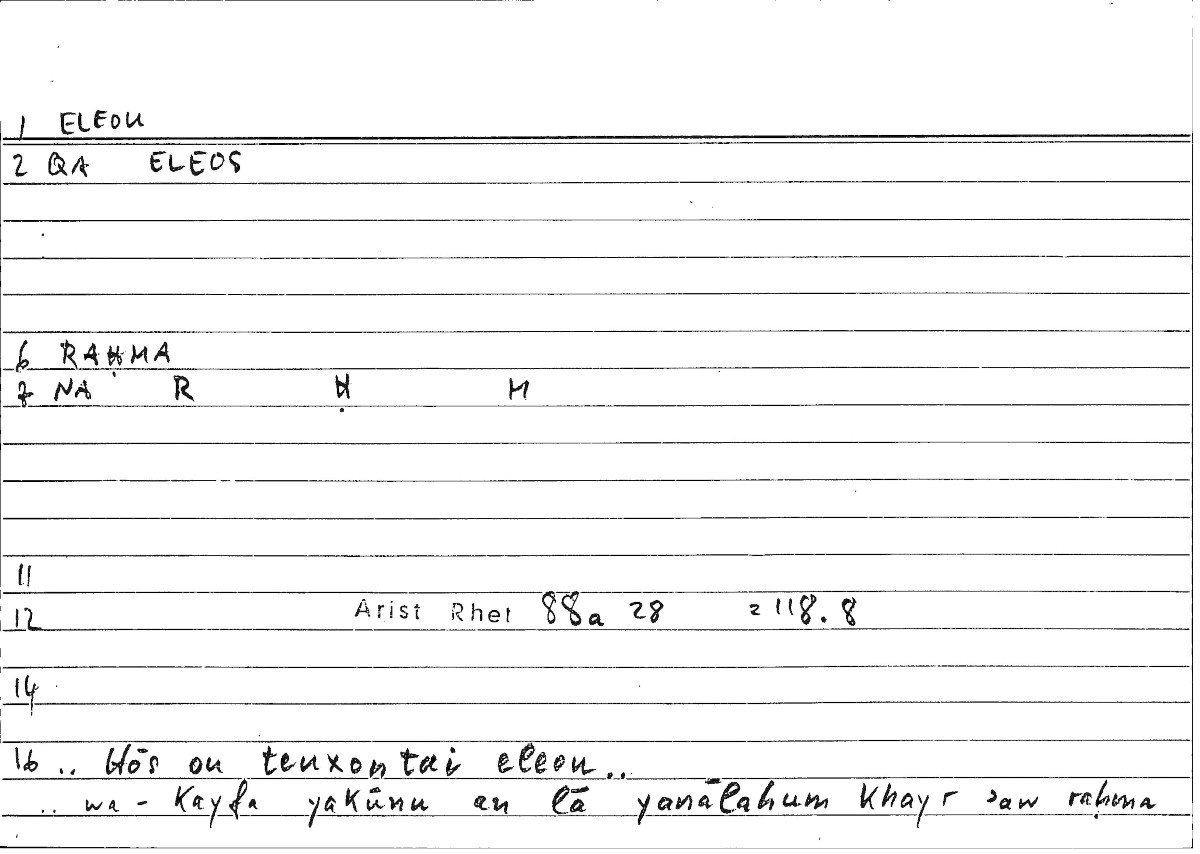 1 ELEOU
2 QA ELEOS
6 RAḤMA
7 NA R Ḥ M
11
12 Arist Rhet 88a 28 = 118.8
14
16 .. Hōs ou teuxontai eleou..
.. wa-Kayfa yakūnu an lā yanālahum Khayr ʾaw raḥma